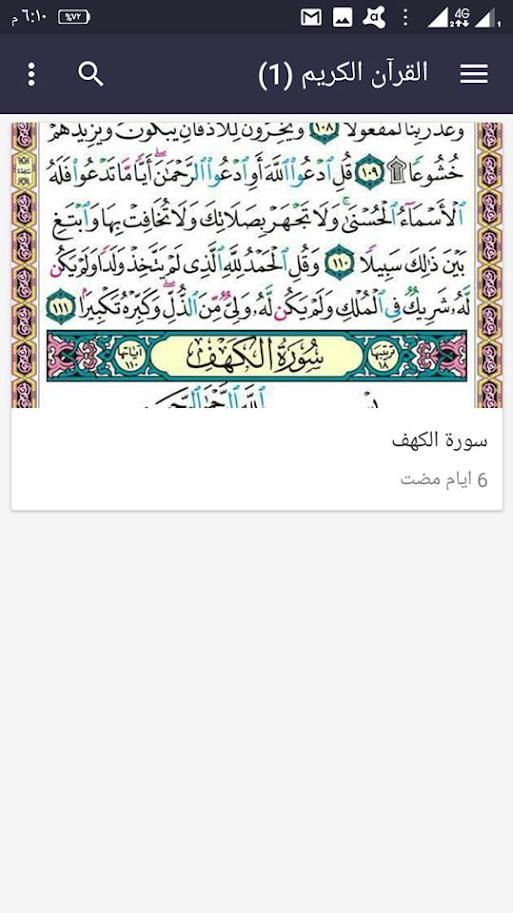 ٦:١٠ م
%٧٢
4G
1
القرآن الكريم (1)
وعد ربنا لمفعولا ١٠٨ ويخرون للأذقان يبكون ويزيدهم
خُشُوعًا ۩ ١٠٩ قُلِ ٱدْعُوا۟ ٱللَّهَ أَوِ ٱدْعُوا۟ ٱلرَّحْمَٰنَ ۖ أَيًّا مَّا تَدْعُوا۟ فَلَهُ
ٱلْأَسْمَآءُ ٱلْحُسْنَىٰ ۚ وَلَا تَجْهَرْ بِصَلَاتِكَ وَلَا تُخَافِتْ بِهَا وَٱبْتَغِ
بَيْنَ ذَٰلِكَ سَبِيلًا ١١٠ وَقُلِ ٱلْحَمْدُ لِلَّهِ ٱلَّذِى لَمْ يَتَّخِذْ وَلَدًا وَلَمْ يَكُن
لَّهُۥ شَرِيكٌ فِى ٱلْمُلْكِ وَلَمْ يَكُن لَّهُۥ وَلِىٌّ مِّنَ ٱلذُّلِّ ۖ وَكَبِّرْهُ تَكْبِيرًۢا ١١١
ترتيبها ١٨ سُورَةُ الكَهْف آياتها ١١٠
بسم ٱللَّه ٱلرَّحمٰن ٱلرَّحيم
سورة الكهف
6 ايام مضت